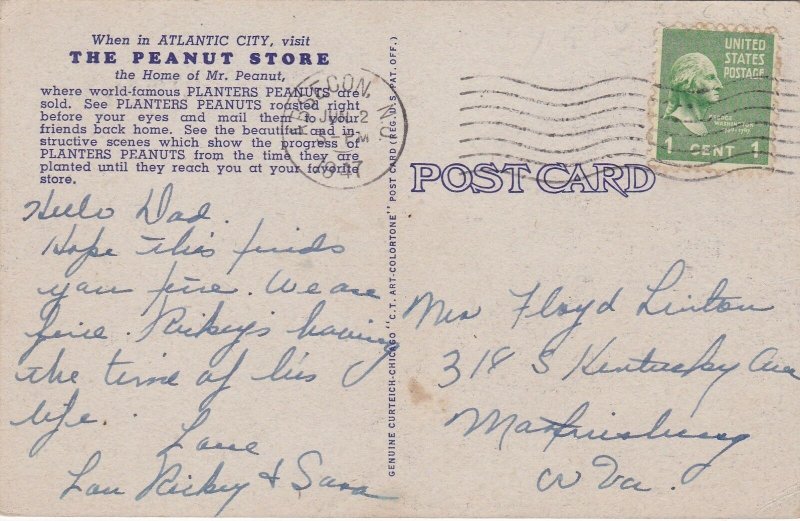 When in ATLANTIC CITY, visit
THE PEANUT STORE
the Home of Mr. Peanut,
where world-famous PLANTERS PEANUTS are
sold. See PLANTERS PEANUTS roasted right
before your eyes and mail them to your
friends back home. See the beautiful and in-
structive scenes which show the progress of
PLANTERS PEANUTS from the time they are
planted until they reach you at your favorite
store.
Hello Dad.
Hope this finds
you fine. We are
fine. Rickey's having
the time of his
life.
Love
Lou Rickey & Sara
GENUINE CURTEICH-CHICAGO "C.T. ART-COLORTONE" POST CARD (REG. U.S. PAT. OFF.)
JUN 2
PM
UNITED
STATES
POSTAGE
WASHINGTON
1 CENT 1
POST CARD
Mrs Floyd Linton
318 S Kentucky Ave
Martinsburg
W Va.